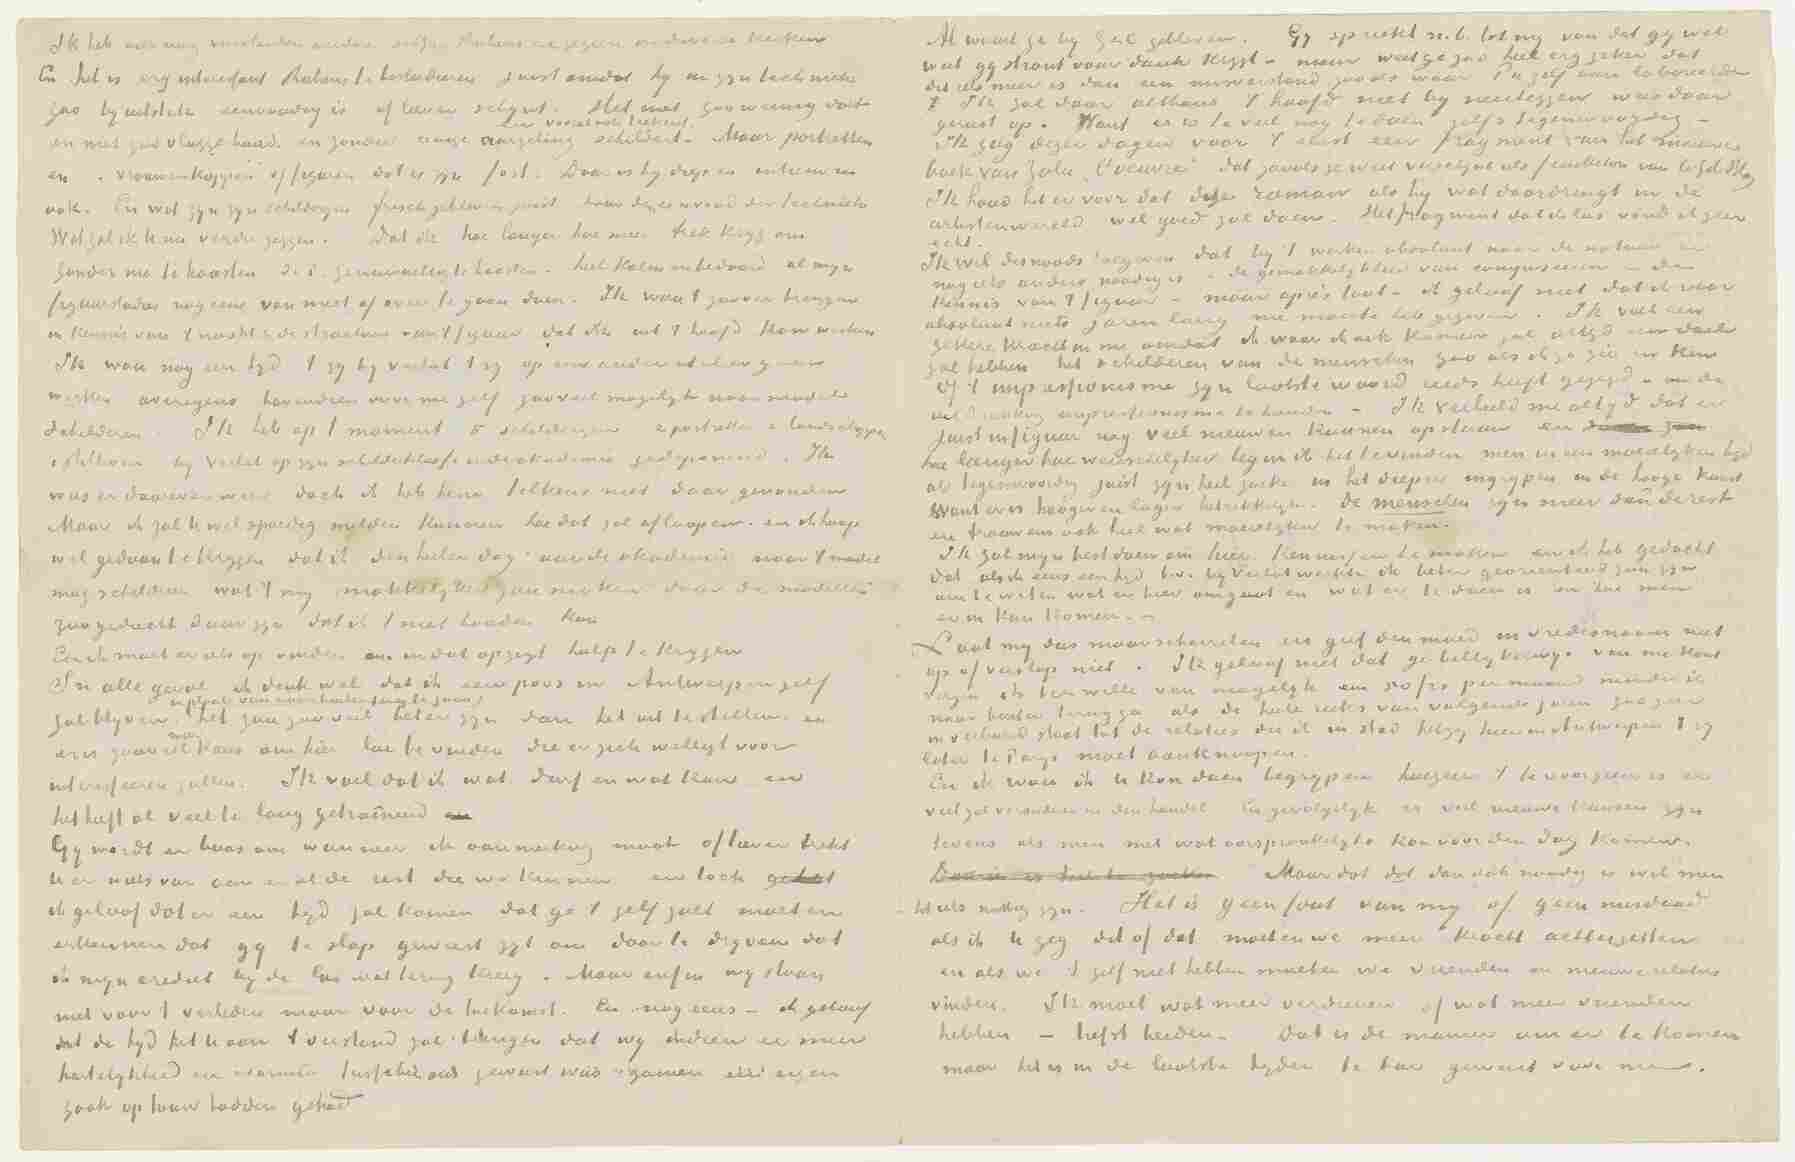 Ik heb ook nog verscheiden andere Rubens gezien in diverse kerken
En het is erg interessant Rubens te bestudeeren juist omdat hy in zyn techniek
zoo byuitstek eenvoudig is of liever schynt. Het met zoo weinig doet
en vooral ook teekent
en met zoo vlugge hand en zonder eenige aarzeling schildert. Maar portretten
en vrouwenkoppen of figuren dat is zyn fort. Daar is hy diep en intiem
ook. En wat zyn zyn schilderyen frisch gebleven juist door de eenvoud der techniek
Wat zal ik U nu verder zeggen. Dat ik hoe langer hoe meer trek kryg om
zonder me te haasten d.i. zenuwachtig te haasten - heel kalm en bedaard al myn
figuurstudies nog eens van meet af over te gaan doen. Ik wou t zoover brengen
in kennis van t naakt & de structuur van t figuur dat ik uit t hoofd kon werken
Ik wou nog een tyd t zy by Verlat t zy op een ander atelier gaan
werken overigens bovendien voor me zelf zooveel mogelyk naar model
schilderen. Ik heb op t moment 5 schilderyen 2 portretten 2 landschappen
1 stilleven by Verlat op zyn schilderklasse in de akademie gedeponeerd. Ik
was er daareven weer doch ik heb hem telkens niet daar gevonden
Maar ik zal U wel spoedig melden kunnen hoe dat zal afloopen. en ik hoop
wel gedaan te krygen dat ik den heelen dag aan de akademie naar t model
mag schilderen wat t my makkelyker zou maken daar de modellen
zoo gedrukt duur zyn dat ik t niet houden kan
En ik moet er iets op vinden om in dat opzigt hulp te krygen
In alle geval ik denk wel dat ik een poos in Antwerpen zelf
in plaats van naar buiten terug te gaan
zal blyven. het zou zooveel beter zyn dan het uit te stellen. en
er is zooveel meer kans om hier lui te vinden die er zich welligt voor
interesseeren zullen. Ik voel dat ik wat durf en wat kan en
het heeft al veel te lang getraineerd
Gy wordt er boos om wanneer ik aanmerking maak of liever trekt
U er niets van aan en al de rest die we kennen en toch
ik geloof dat er een tyd zal komen dat ge t zelf zult moeten
erkennen dat gy te slap geweest zyt om door te dryven dat
ik myn crediet by de lui wat terug kreeg. Maar enfin wy staan
niet voor t verleden maar voor de toekomst. En nog eens - ik geloof
dat de tyd het U aan t verstand zal brengen dat wy indien er meer
hartelykheid en warmte tusschen ons geweest was zamen een eigen
zaak op touw hadden gehad
Al waart ge by G&Cie gebleven. Gy spreekt n.b. tot my van dat gy wel
weet gy stront voor dank krygt - maar weet ge zoo heel erg zeker dat
dit iets meer is dan een misverstand zooals waar Pa zelf aan laboreerde
? Ik zal daar althans t hoofd niet by neerleggen wees daar
gerust op. Want er is te veel nog te doen zelfs tegenwoordig -
Ik zag dezer dagen voor t eerst een fragment van het nieuwe
boek van Zola "L'oeuvre" dat zooals ge weet verschynt als feuilleton van le Gil Blas
Ik houd het er voor dat deze roman als hy wat doordringt in de
artistenwereld wel goed zal doen. Het fragment dat ik las vond ik zeer
echt.
Ik wil desnoods toegeven dat by t werken absoluut naar de natuur er
nog iets anders noodig is - de gemakkelykheid van composeeren - de
kennis van t figuur - maar après tout - ik geloof niet dat ik voor
absoluut niets jaren lang me moeite heb gegeven. Ik voel een
zekere kracht in me omdat ik waar ik ook komen zal altyd een doel
zal hebben het schilderen van de menschen zoo als ik ze zie en ken
Of t impressionisme zyn laatste woord reeds heeft gezegd - om de
uitdrukking impressionisme te houden - Ik verbeeld me altyd dat er
juist in t figuur nog veel nieuwen kunnen opstaan en
hoe langer hoe wenschelyker begin ik het te vinden men in een moeielyken tyd
als tegenwoordig juist zyn heil zoeke in het dieper ingrypen in de hooge kunst
Want er is hooger en lager betrekkelyk. de menschen zyn meer dan de rest
en trouwens ook heel wat moeielyker te maken.
Ik zal myn best doen om hier kennissen te maken en ik heb gedacht
dat als ik eens een tyd b.v. by Verlat werkte ik beter georienteerd zou zyn
om te weten wat er hier omgaat en wat er te doen is en hoe men
er in kan komen. -
Laat my dus maar scharrelen en geef den moed in vredesnaam niet
op of verslap niet. Ik geloof niet dat ge billykerwys van me kunt
vergen ik ter wille van mogelyk een 50 frs per maand minder ik
naar buiten terugga als de heele reeks van volgende jaren zoozeer
in verband staat tot de relaties die ik in stad hetzy hier in Antwerpen t zy
later te Parys moet aanknoopen.
En ik wou ik U kon doen begrypen hoezeer t te voorzien is er
veel zal veranderen in den handel. En gevolgelyk er veel nieuwe kansen zyn
tevens als men met wat oorspronkelyks kon voor den dag komen.
Maar dat dat dan ook noodig is wil men
tot iets nuttig zyn. Het is geen fout van my of geen misdaad
als ik U zeg dit of dat moeten we meer kracht achterzetten
en als we t zelf niet hebben moeten we vrienden en nieuwe relaties
vinden. Ik moet wat meer verdienen of wat meer vrienden
hebben - liefst beiden. Dat is de manier om er te komen
maar het is in de laatste tyden te bar geweest voor me.